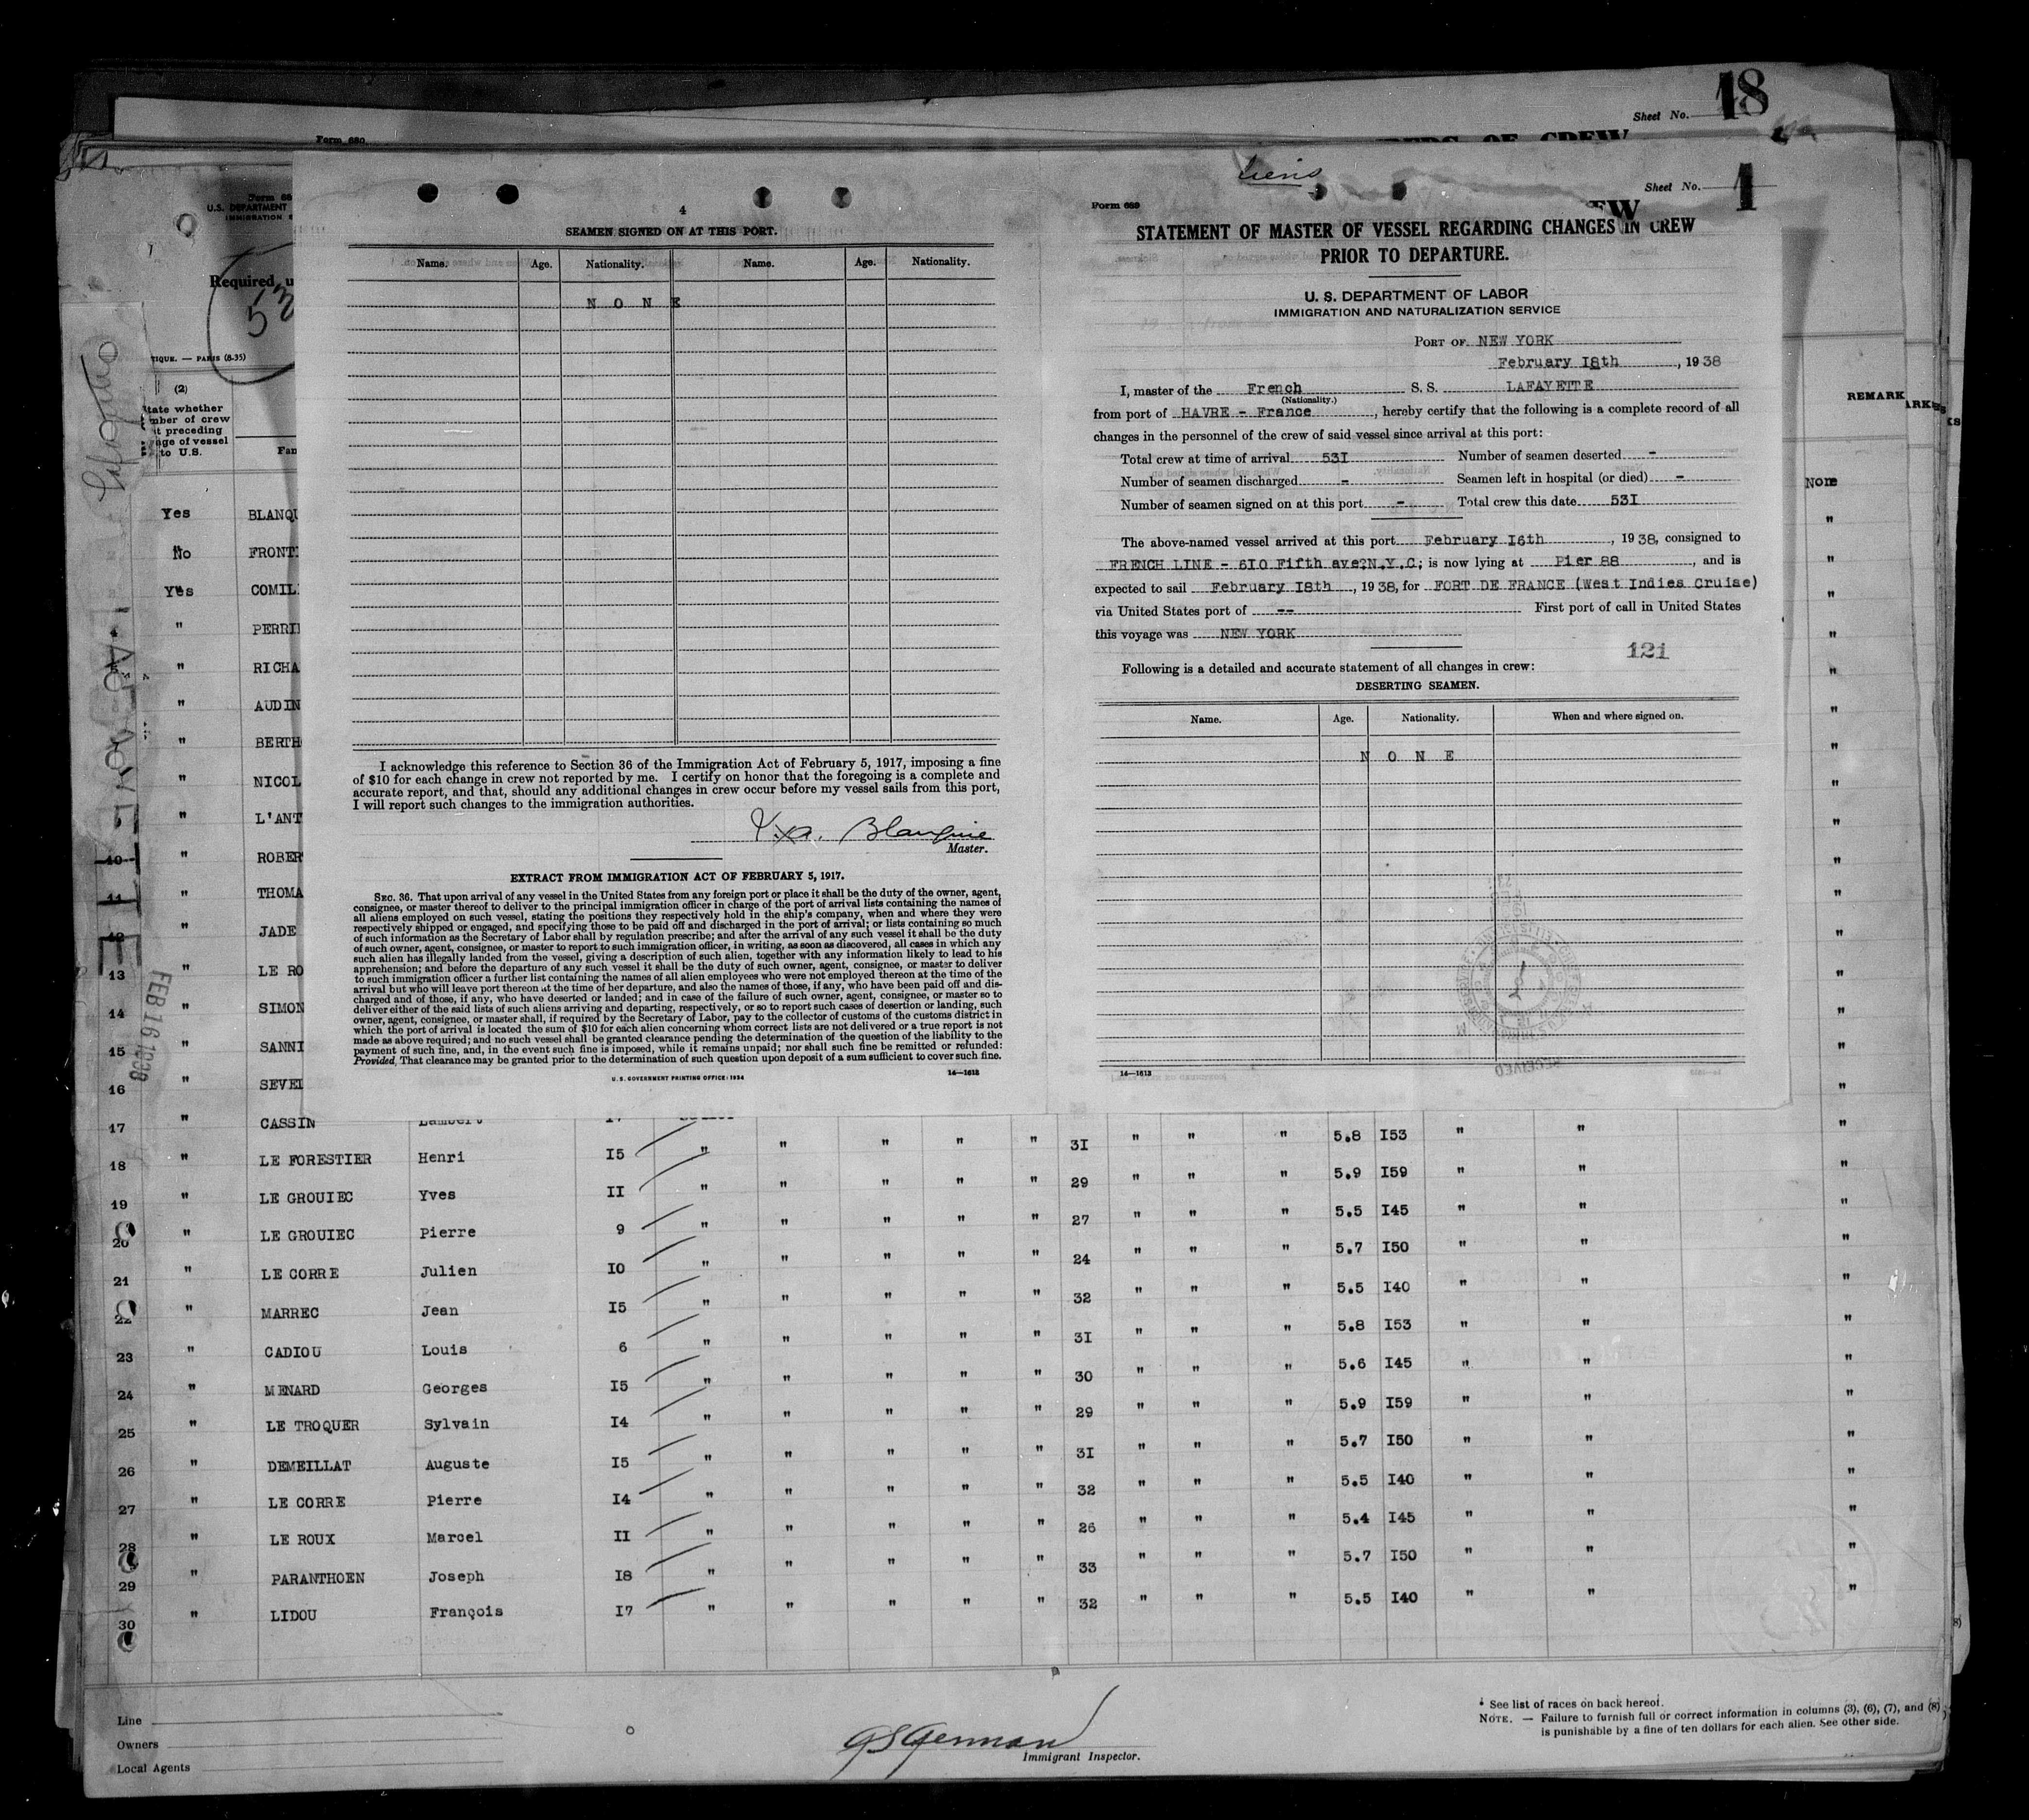 Sheet No. 18
Form 680
Sheet No. 1
Form 689
U.S. DEPARTMENT
Required
53
TIQUE. — PARIS (8-35)
(2)
state whether
member of crew
preceding
of vessel
to U.S.
Lafayette
LAFAYETTE
FEB 16 1938
4
SEAMEN SIGNED ON AT THIS PORT.
Name. Age. Nationality. Name. Age. Nationality.
N O N E
I acknowledge this reference to Section 36 of the Immigration Act of February 5, 1917, imposing a fine
of $10 for each change in crew not reported by me. I certify on honor that the foregoing is a complete and
accurate report, and that, should any additional changes in crew occur before my vessel sails from this port,
I will report such changes to the immigration authorities.
Blanquie
Master.
EXTRACT FROM IMMIGRATION ACT OF FEBRUARY 5, 1917.
SEC. 36. That upon arrival of any vessel in the United States from any foreign port or place it shall be the duty of the owner, agent,
consignee, or master thereof to deliver to the principal immigration officer in charge of the port of arrival lists containing the names of
all aliens employed on such vessel, stating the positions they respectively hold in the ship's company, when and where they were
respectively shipped or engaged, and specifying those to be paid off and discharged in the port of arrival; or lists containing so much
of such information as the Secretary of Labor shall by regulation prescribe; and after the arrival of any such vessel it shall be the duty
of such owner, agent, consignee, or master to report to such immigration officer, in writing, as soon as discovered, all cases in which any
such alien has illegally landed from the vessel, giving a description of such alien, together with any information likely to lead to his
apprehension; and before the departure of any such vessel it shall be the duty of such owner, agent, consignee, or master to deliver
to such immigration officer a further list containing the names of all alien employees who were not employed thereon at the time of the
arrival but who will leave port thereon at the time of her departure, and also the names of those, if any, who have been paid off and dis-
charged and of those, if any, who have deserted or landed; and in case of the failure of such owner, agent, consignee, or master so to
deliver either of the said lists of such aliens arriving and departing, respectively, or so to report such cases of desertion or landing, such
owner, agent, consignee, or master shall, if required by the Secretary of Labor, pay to the collector of customs of the customs district in
which the port of arrival is located the sum of $10 for each alien concerning whom correct lists are not delivered or a true report is not
made as above required; and no such vessel shall be granted clearance pending the determination of the question of the liability to the
payment of such fine, and, in the event such fine is imposed, while it remains unpaid; nor shall such fine be remitted or refunded:
Provided, That clearance may be granted prior to the determination of such question upon deposit of a sum sufficient to cover such fine.
U. S. GOVERNMENT PRINTING OFFICE: 1934 14—1613
STATEMENT OF MASTER OF VESSEL REGARDING CHANGES IN CREW
PRIOR TO DEPARTURE.
U. S. DEPARTMENT OF LABOR
IMMIGRATION AND NATURALIZATION SERVICE
PORT OF NEW YORK
February 18th, 1938
I, master of the French S. S. LAFAYETTE
(Nationality.)
from port of HAVRE - France, hereby certify that the following is a complete record of all
changes in the personnel of the crew of said vessel since arrival at this port:
Total crew at time of arrival 53I Number of seamen deserted -
Number of seamen discharged - Seamen left in hospital (or died) -
Number of seamen signed on at this port - Total crew this date 53I
The above-named vessel arrived at this port February I6th, 1938, consigned to
FRENCH LINE - 6I0 Fifth ave?N.Y.C; is now lying at Pier 88, and is
expected to sail February I8th, 1938, for FORT DE FRANCE (West Indies Cruise)
via United States port of -- First port of call in United States
this voyage was NEW YORK
121
Following is a detailed and accurate statement of all changes in crew:
DESERTING SEAMEN.
Name. Age. Nationality. When and where signed on.
N O N E
14—1613
REMARK
None
Yes BLANQU
No FRONT
Yes COMIL
" PERRI
" RICHA
" AUDIN
" BERTH
" NICOL
" L'ANT
10 " ROBER
11 " THOMA
12 " JADE
13 " LE RO
14 " SIMON
15 " SANNI
16 " SEVE
17 " CASSIN Lambert I7
18 " LE FORESTIER Henri I5 " " " " " 3I " " " 5.8 I53 " " "
19 " LE GROUIEC Yves II " " " " " 29 " " " 5.9 I59 " " "
20 " LE GROUIEC Pierre 9 " " " " " 27 " " " 5.5 I45 " " "
21 " LE CORRE Julien I0 " " " " " 24 " " " 5.7 I50 " " "
22 " MARREC Jean I5 " " " " " 32 " " " 5.5 I40 " " "
23 " CADIOU Louis 6 " " " " " 3I " " " 5.8 I53 " " "
24 " MENARD Georges I5 " " " " " 30 " " " 5.6 I45 " " "
25 " LE TROQUER Sylvain I4 " " " " " 29 " " " 5.9 I59 " " "
26 " DEMEILLAT Auguste I5 " " " " " 3I " " " 5.7 I50 " " "
27 " LE CORRE Pierre I4 " " " " " 32 " " " 5.5 I40 " " "
28 " LE ROUX Marcel II " " " " " 26 " " " 5.4 I45 " " "
29 " PARANTHOEN Joseph I8 " " " " " 33 " " " 5.7 I50 " " "
30 " LIDOU François I7 " " " " " 32 " " " 5.5 I40 " " "
Line
Owners
Local Agents
GS German
Immigrant Inspector.
* See list of races on back hereof.
NOTE. — Failure to furnish full or correct information in columns (3), (6), (7), and (8)
is punishable by a fine of ten dollars for each alien. See other side.